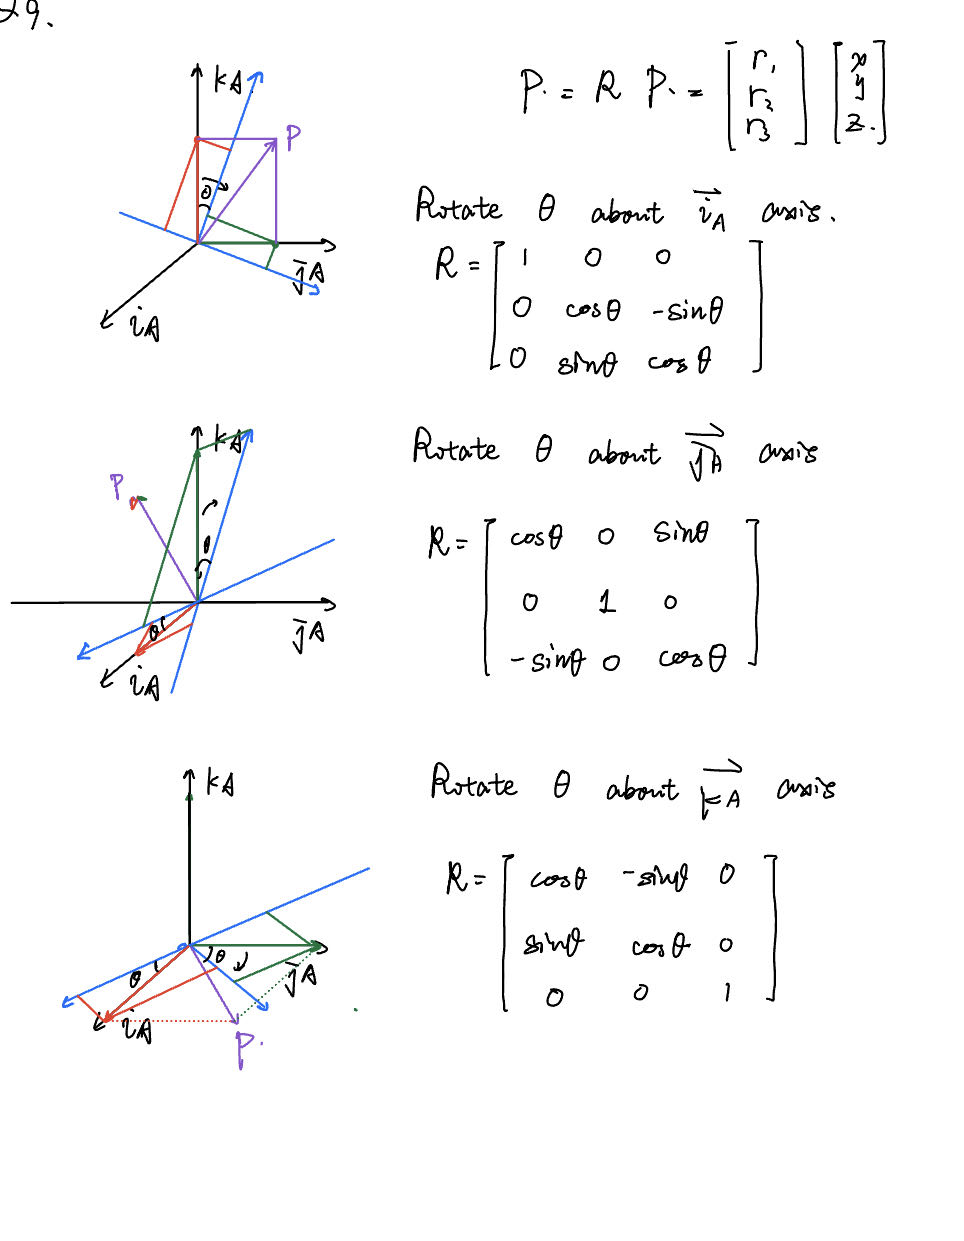 29.
P. = R P. = [r₁ r₂ r₃] [x y z.]
kA
P
θ
jA
iA
Rotate θ about iA axis.
R = [1 0 0
0 cosθ -sinθ
0 sinθ cosθ]
kA
P
θ
θ
jA
iA
Rotate θ about jA axis
R = [cosθ 0 sinθ
0 1 0
-sinθ 0 cosθ]
kA
θ
θ
jA
iA
P.
Rotate θ about kA axis
R = [cosθ -sinθ 0
sinθ cosθ 0
0 0 1]